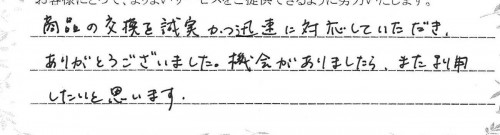 お客様にとって、よりよいサービスをご提供できるように努力いたします。
商品の交換を誠実かつ迅速に対応していただき、
ありがとうございました。機会がありましたら、また利用
したいと思います.